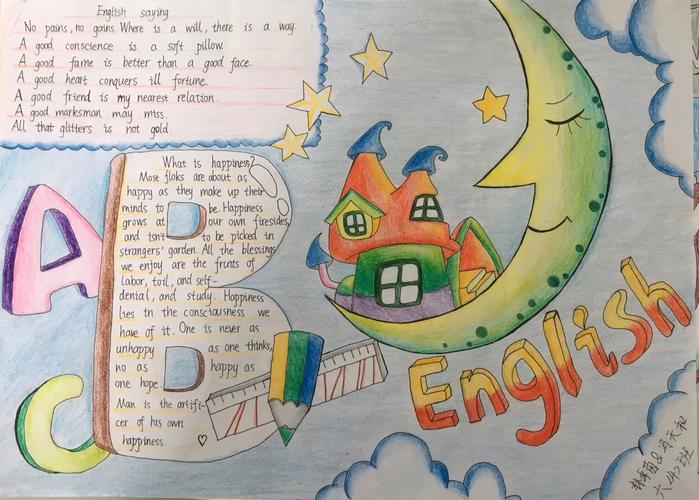 English saying
No pains, no gains. Where is a will, there is a way.
A good conscience is a soft pillow.
A good fame is better than a good face.
A good heart conquers ill fortune.
A good friend is my nearest relation.
A good marksman may miss.
All that glitters is not gold.
A
What is happiness?
Most floks are about as
happy as they make up their
minds to be. Happiness
grows at our own firesides,
and isn't to be picked in
strangers' garden. All the blessings
we enjoy are the fruits of
labor, toil, and self-
denial, and study. Happiness
lies in the consciousness we
have of it. One is never as
unhappy as one thinks,
no as happy as
one hope.
Man is the artifi-
cer of his own
happiness.
B
C
English
六〈4〉班